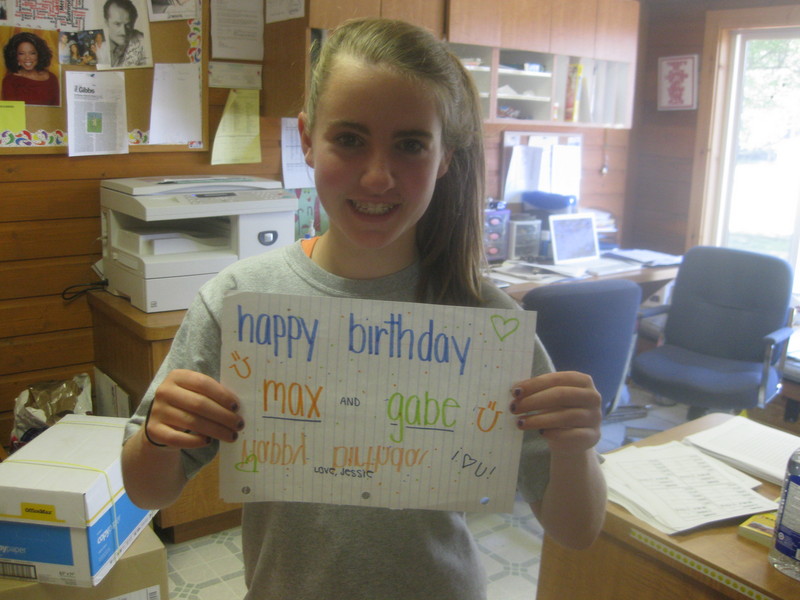 happy birthday
max AND gabe
Happy Birthday
LOVE, JESSIE
I ♡ U!
OfficeMax